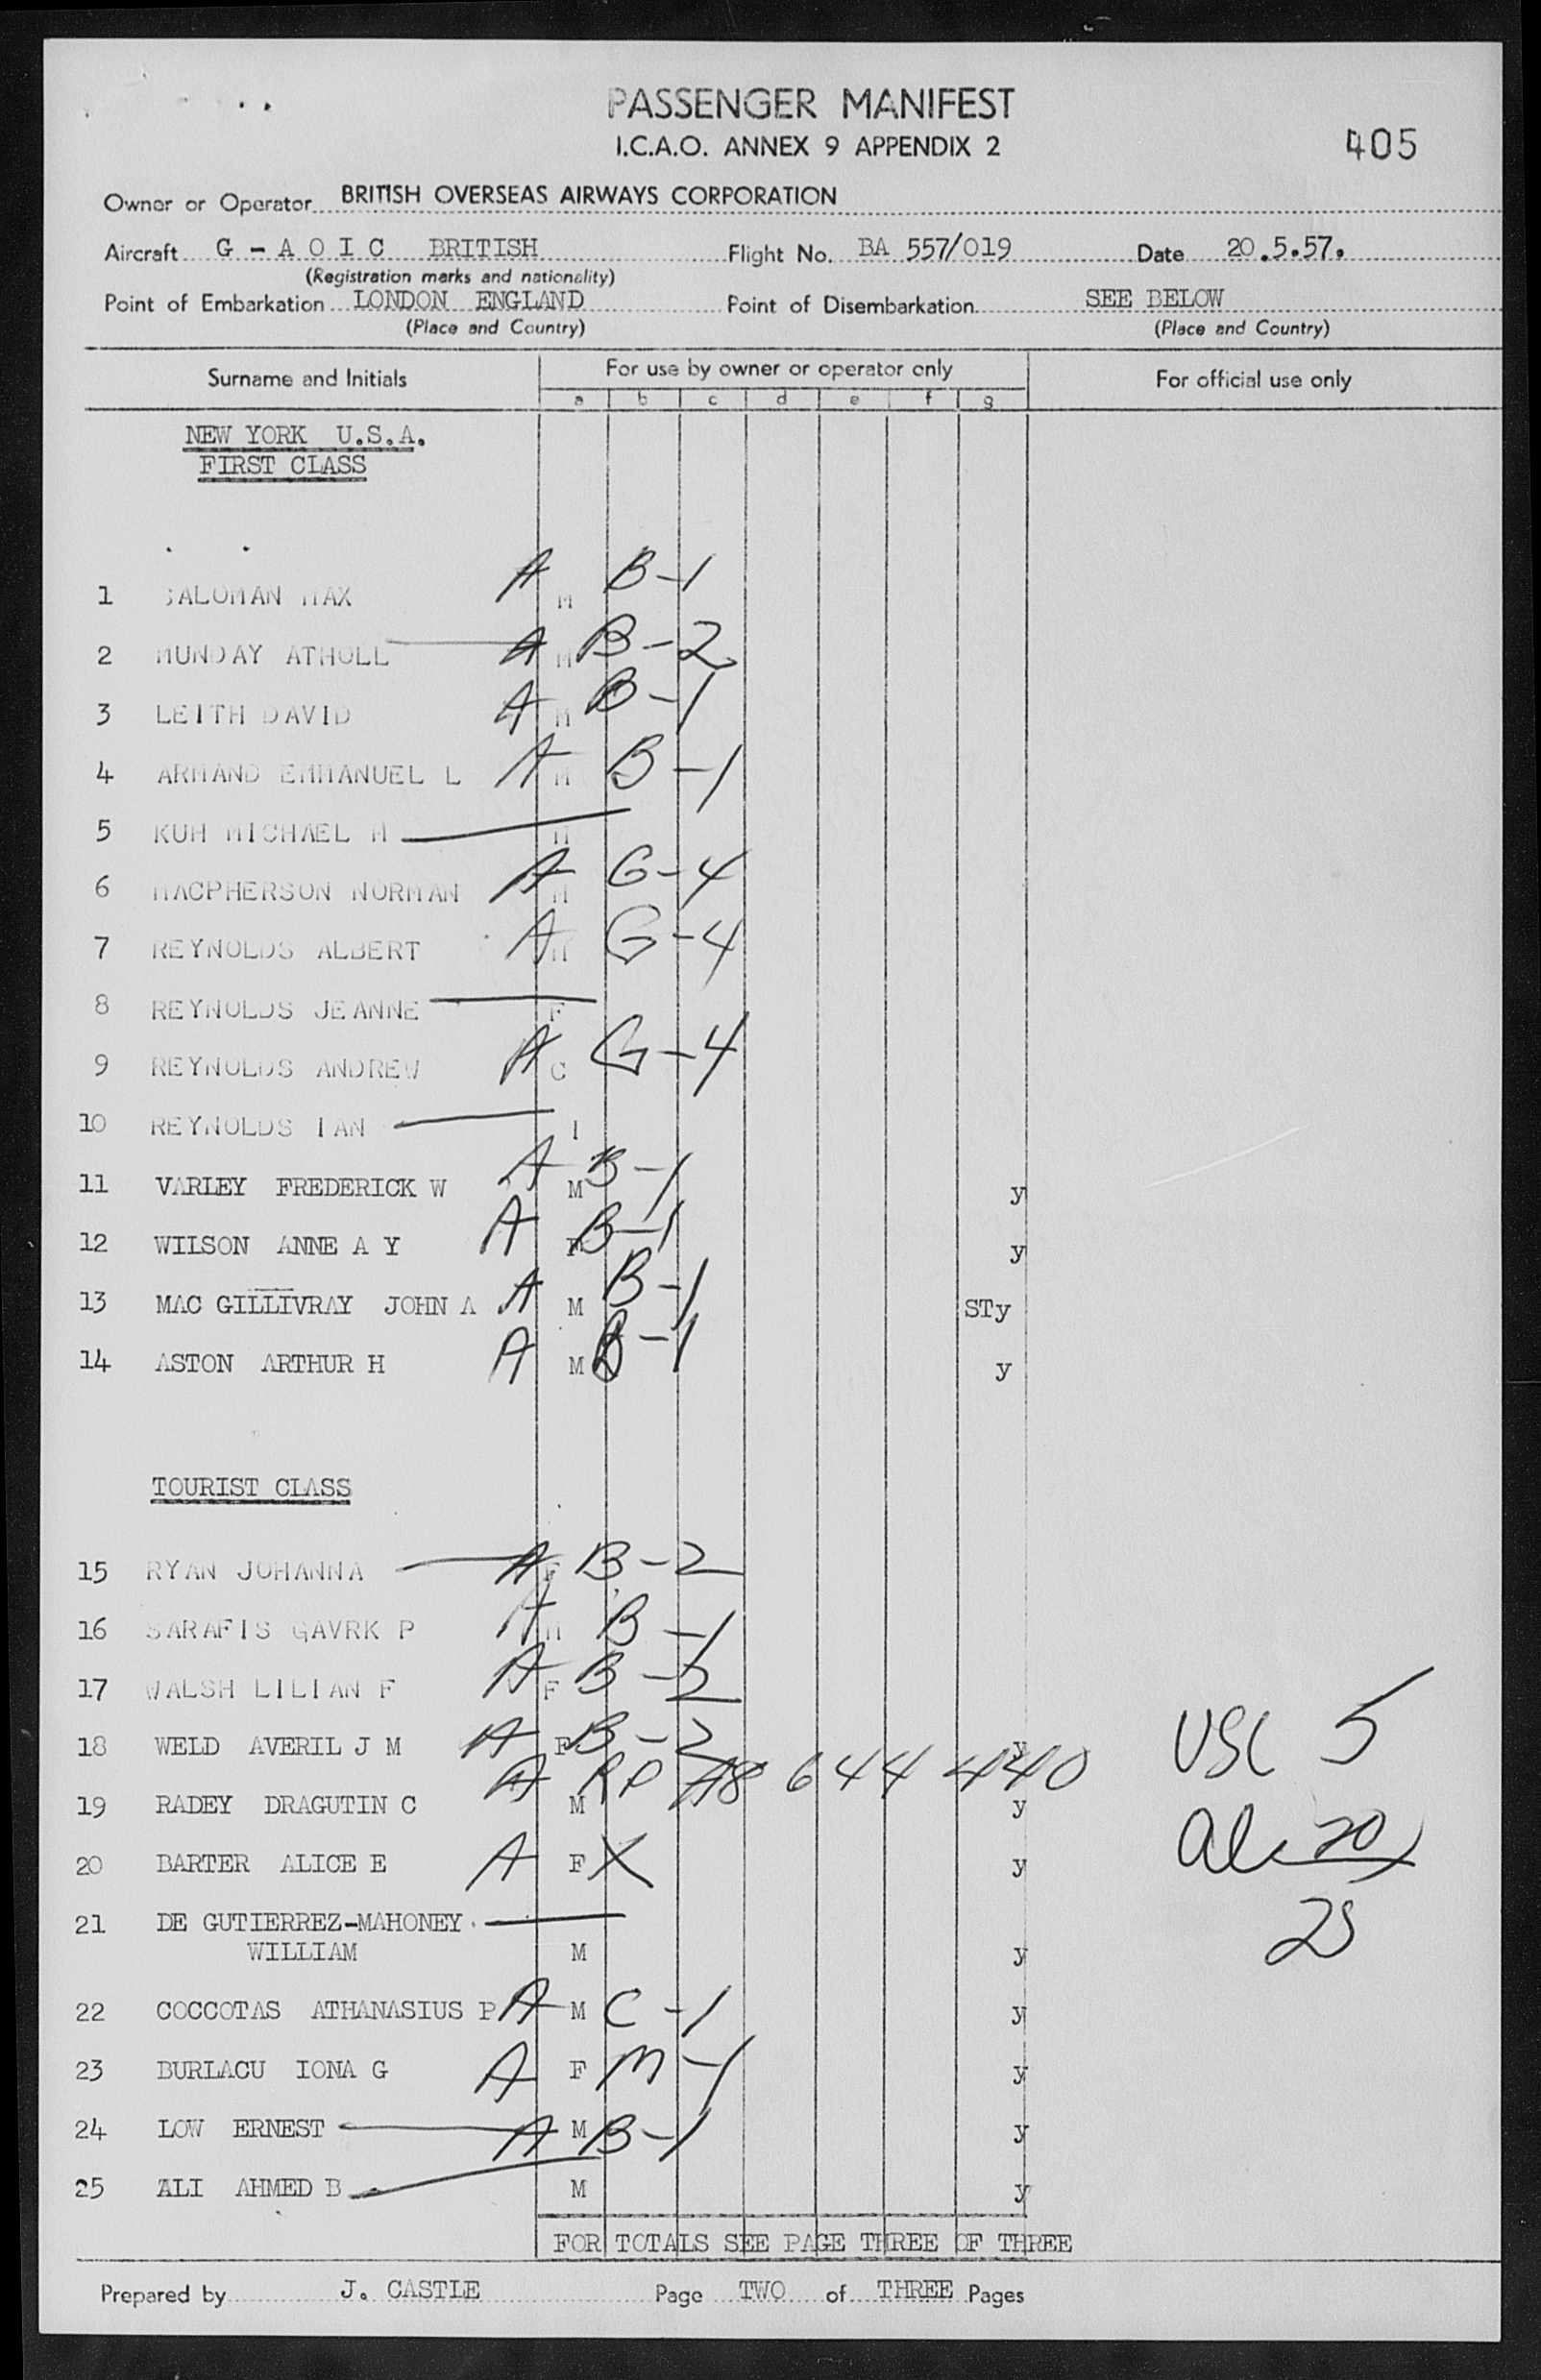 PASSENGER MANIFEST
I.C.A.O. ANNEX 9 APPENDIX 2
405
Owner or Operator BRITISH OVERSEAS AIRWAYS CORPORATION
Aircraft G - A O I C BRITISH Flight No. BA 557/019 Date 20.5.57.
(Registration marks and nationality)
Point of Embarkation LONDON ENGLAND Point of Disembarkation SEE BELOW
(Place and Country) (Place and Country)
Surname and Initials For use by owner or operator only For official use only
a b c d e f g
NEW YORK U.S.A.
FIRST CLASS
1 SALOMAN MAX A M B-1
2 MUNDAY ATHOLL A M B-2
3 LEITH DAVID A M B-1
4 ARMAND EMMANUEL L A M B-1
5 KUH MICHAEL M M
6 MACPHERSON NORMAN A M G-4
7 REYNOLDS ALBERT A M G-4
8 REYNOLDS JEANNE F
9 REYNOLDS ANDREW A C G-4
10 REYNOLDS IAN I
11 VARLEY FREDERICK W A M B-1 y
12 WILSON ANNE A Y A F B-1 y
13 MAC GILLIVRAY JOHN A A M B-1 STy
14 ASTON ARTHUR H A M B-1 y
TOURIST CLASS
15 RYAN JOHANNA A F B-2
16 SARAFIS GAVRK P A M B-1
17 WALSH LILIAN F A F B-2
18 WELD AVERIL J M A F B-2 y
19 RADEY DRAGUTIN C A M RP A8 644 440 y
20 BARTER ALICE E A F X y
21 DE GUTIERREZ-MAHONEY
WILLIAM M y
22 COCCOTAS ATHANASIUS P A M C-1 y
23 BURLACU IONA G A F M-1 y
24 LOW ERNEST A M B-1 y
25 ALI AHMED B M y
USC 5
Al 20
25
FOR TOTALS SEE PAGE THREE OF THREE
Prepared by J. CASTLE Page TWO of THREE Pages